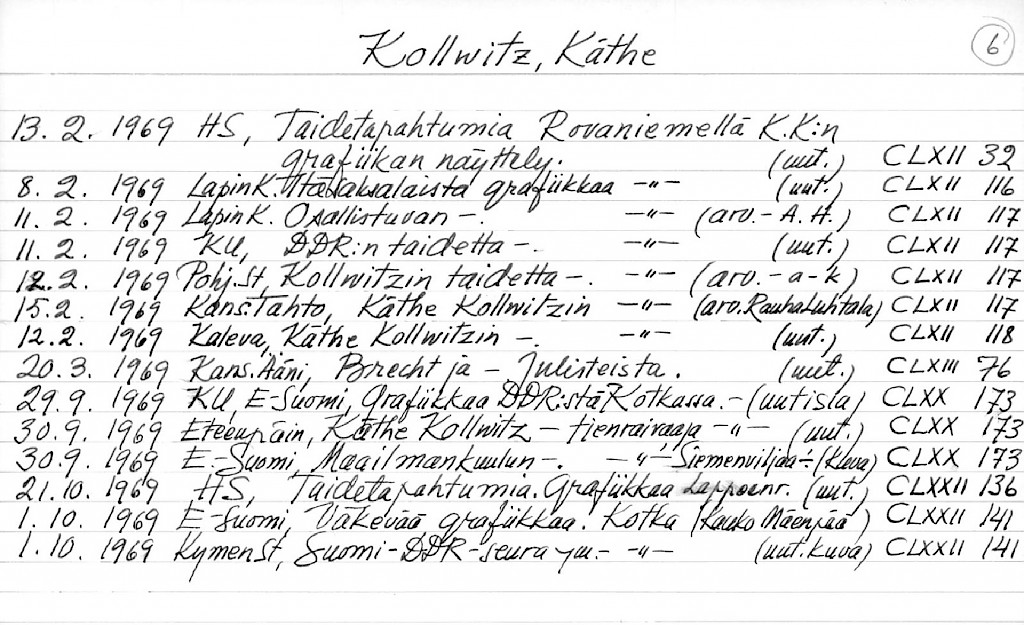 Kollwitz, Käthe
6
13. 2. 1969 HS, Taidetapahtumia Rovaniemellä K.K:n
grafiikan näyttely. (uut.) CLXII 32
8. 2. 1969 Lapin K. Itäsaksalaista grafiikkaa -"- (uut.) CLXII 116
11. 2. 1969 Lapin K. Osallistuvan -. -"- (arv. - A. H.) CLXII 117
11. 2. 1969 KU, DDR:n taidetta -. -"- (uut.) CLXII 117
12.2. 1969 Pohj.St, Kollwitzin taidetta -. -"- (arv. - a - k) CLXII 117
15.2. 1969 Kans.Tahto, Käthe Kollwitzin -"- (arv. Rauha Luhtala) CLXII 117
12.2. 1969 Kaleva, Käthe Kollwitzin -. -"- (uut.) CLXII 118
20.3. 1969 Kans.Ääni, Brecht ja - Julisteista. (uut.) CLXIII 76
29.9. 1969 KU, E-Suomi, Grafiikkaa DDR:stä Kotkassa. - (uutisia) CLXX 173
30.9. 1969 Eteenpäin, Käthe Kollwitz - tienraivaaja -"- (uut.) CLXX 173
30.9. 1969 E-Suomi, Maailmankuulun -. -"- Siemenviljaa -. (Kuva) CLXX 173
21.10. 1969 HS, Taidetapahtumia. Grafiikkaa Lappeenr. (uut.) CLXXII 136
1. 10. 1969 E-Suomi, Väkevää grafiikkaa. Kotka (Kauko Mäenpää) CLXXII 141
1. 10. 1969 Kymen St, Suomi-DDR-seura ym.- -"- (uut. kuva) CLXXII 141